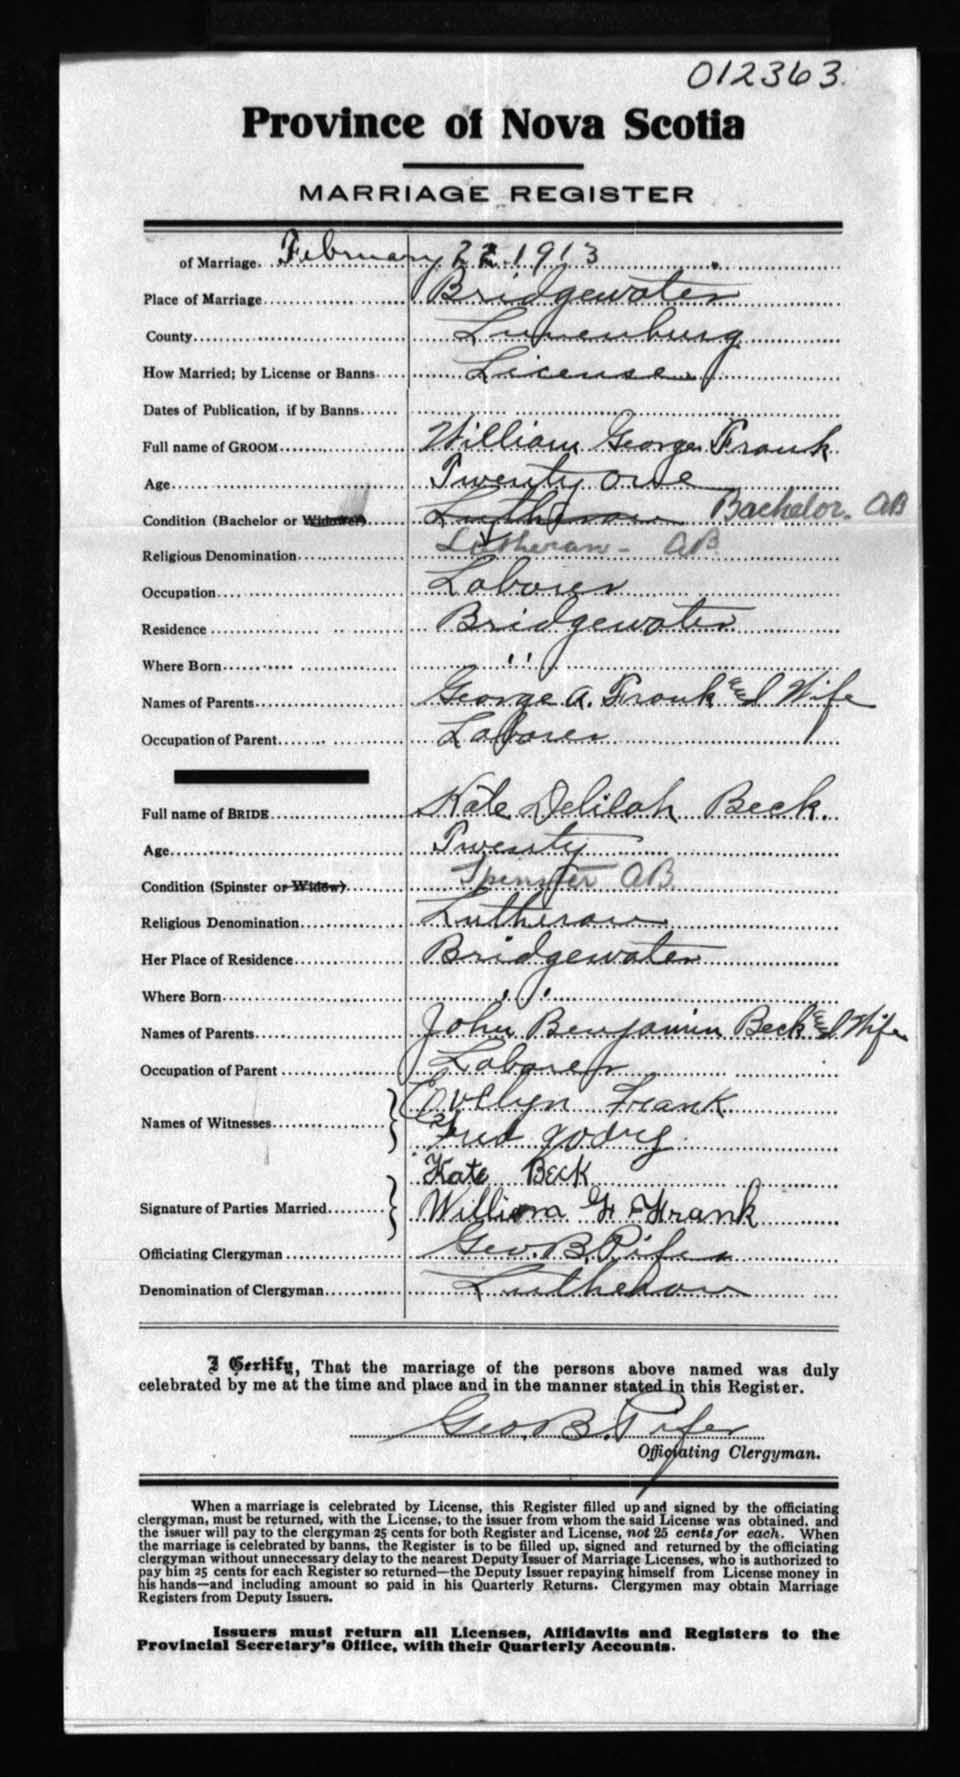 012363.
Province of Nova Scotia
MARRIAGE REGISTER
of Marriage. February 22 1913
Place of Marriage Bridgewater
County Lunenburg
How Married; by License or Banns License
Dates of Publication, if by Banns
Full name of GROOM William George Frank
Age Twenty one
Condition (Bachelor or Widower) Lutheran Bachelor. AB
Religious Denomination Lutheran - AB
Occupation Laborer
Residence Bridgewater
Where Born " "
Names of Parents George A. Frank and Wife
Occupation of Parent Laborer
Full name of BRIDE Kate Delilah Beck.
Age Twenty
Condition (Spinster or Widow) Spinster AB
Religious Denomination Lutheran
Her Place of Residence Bridgewater
Where Born " "
Names of Parents John Benjamin Beck and Wife
Occupation of Parent Laborer
Names of Witnesses Evellyn Frank
Kate Beck
Signature of Parties Married William G Frank
Officiating Clergyman Geo. B. Pifer
Denomination of Clergyman Lutheran
I Certify, That the marriage of the persons above named was duly
celebrated by me at the time and place and in the manner stated in this Register.
Geo. B. Pifer
Officiating Clergyman.
When a marriage is celebrated by License, this Register filled up and signed by the officiating
clergyman, must be returned, with the License, to the issuer from whom the said License was obtained, and
the issuer will pay to the clergyman 25 cents for both Register and License, not 25 cents for each. When
the marriage is celebrated by banns, the Register is to be filled up, signed and returned by the officiating
clergyman without unnecessary delay to the nearest Deputy Issuer of Marriage Licenses, who is authorized to
pay him 25 cents for each Register so returned—the Deputy Issuer repaying himself from License money in
his hands—and including amount so paid in his Quarterly Returns. Clergymen may obtain Marriage
Registers from Deputy Issuers.
Issuers must return all Licenses, Affidavits and Registers to the
Provincial Secretary's Office, with their Quarterly Accounts.